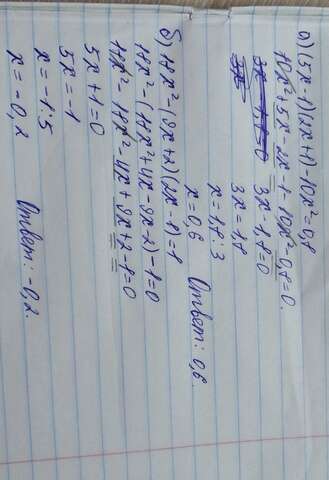 а) (5x-1)(2x+1)-10x²=0,8
10x²+5x-2x-1-10x²-0,8=0.
3x-1,8=0
3x=1,8
x=1,8:3
x=0,6 Ответ: 0,6.
б) 18x²-(9x+2)(2x-1)=1
18x²-(18x²+4x-9x-2)-1=0
18x²-18x²-4x+9x+2-1=0
5x+1=0
5x=-1
x=-1:5
x=-0,2 Ответ: -0,2.